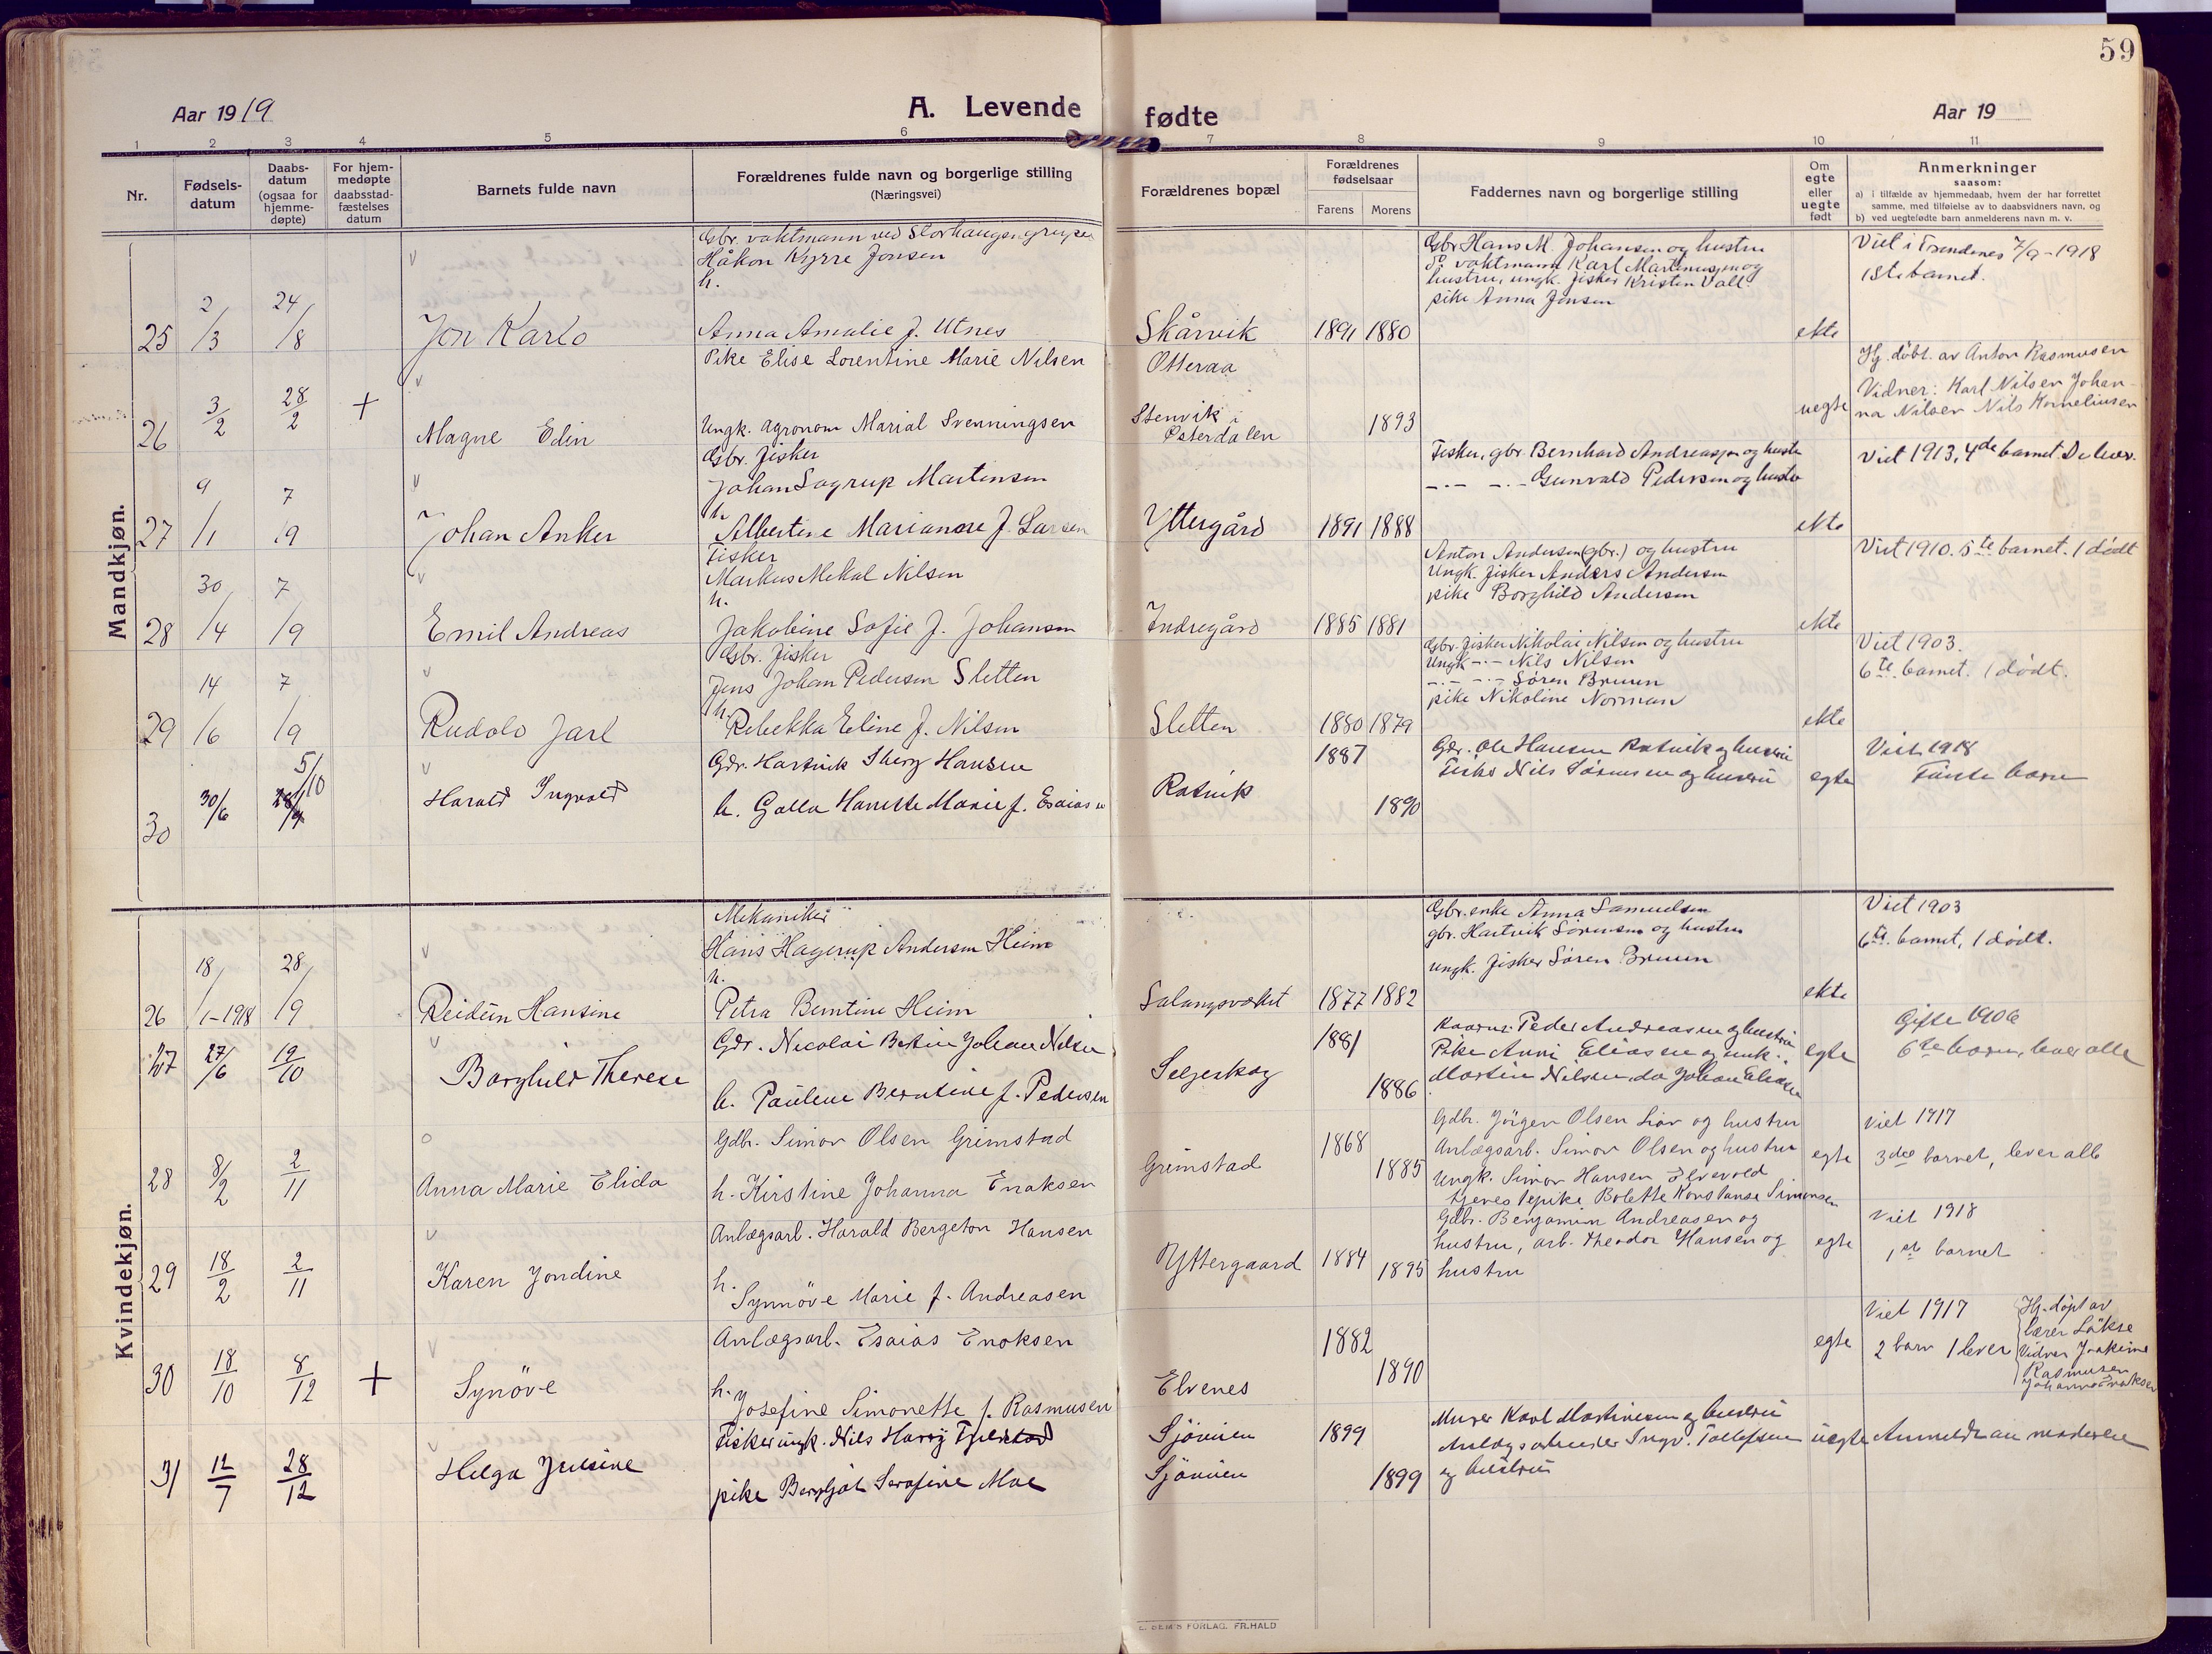 59
Aar 1919
A. Levende fødte
Aar 19
1 2 3 4 5 6 7 8 9 10 11
Nr.
Fødsels-datum
Daabs-datum (ogsaa for hjemme-døpte)
For hjem-medøpte daabsstad-fæstelses datum
Barnets fulde navn
Forældrenes fulde navn og borgerlige stilling
(Næringsvei)
Forældrenes bopæl
Forældrenes fødselsaar
Farens Morens
Faddernes navn og borgerlige stilling
Om egte eller uegte født
Anmerkninger
saasom:
a) i tilfælde av hjemmedaab, hvem der har forrettet samme, med tilføielse av to daabsvidners navn, og
b) ved uegtefødte barn anmelderens navn m. v.
Mandkjøn.
Gbr. vaktmann ved Storhaugen gruper
Håkon Kyrre Jonsen
h.
Anna Amalie f. Utnes
25 2/3 24/8 Jon Karlo
Skårvik 1891 1880
Gbr Hans M. Johansen og hustru
vaktmann Karl Martinussen og
hustru, ungk. fisker Kristen Vall
pike Anna Jensen
ekte
Viet i Trondenes 7/9-1918
1ste barnet.
Pike Elise Lorentine Marie Nilsen
26 3/2 28/2 + Magne Edin
Ungk. agronom Marial Svenningsen
Otteraa
Stenvik i Østerdalen
1893
uegte
Hj. døbt. av Anton Rasmusen
Vidner: Karl Nilsen Johan-
na Nilsen Nils Korneliusen
Gbr. fisker
Johan Sagrup Martinsen
h
Albertine Marianne f. Larsen
27 9/1 7/9 Johan Anker
Yttergård 1891 1888
Fisker, gbr. Bernhard Andreassen og hustr
-.- -.- Gunvald Pedersen og hustr
ekte
Viet 1913, 4de barnet De lever.
Fisker
Markus Mekal Nilsen
h.
Jakobine Sofie f. Johansen
28 30/4 7/9 Emil Andreas
Indregård 1885 1881
Anton Andersen (gbr.) og hustru
Ungk. fisker Anders Andersen
pike Borghild Andersen
ekte
Viet 1910. 5te barnet. 1 dødt
Gbr. fisker
Jens Johan Pedersen Sletten
h.
Rebekka Eline f. Nilsen
29 14/6 7/9 Rudolo Jarl
Sletten 1880 1879
Gbr. fisker Nikolai Nilsen og hustru
Ungk -.- Nils Nilsen
-.- -.- Søren Bruun
pike Nikoline Norman
ekte
Viet 1903.
6te barnet. 1 dødt.
30 30/6 5/10 28/9 Harald Ingvald
Gdr. Hartvik Hansen
h. Galla Hanette Marie f. Esaiasen
Rotvik 1887 1890
Gdr. Ole Hansen Rotvik og hustru
Fisker Nils Sørensen og hustru
egte
Viet 1918
Første barn
Kvindekjøn.
Mekaniker
Hans Hagerup Andersen Heim
h.
Petra Berntine Heim
26 18/1-1918 28/9 Reidun Hansine
Salangsverket 1877 1882
Gbr. enke Anna Samuelsen
gbr. Hartvik Sørensen og hustru
ungk. fisker Søren Bruun
ekte
Viet 1903
6te barnet, 1 dødt.
27 27/6 19/10 Borghild Therese
Gdr. Nicolai Johan Nilsen
h. Pauline Berntine f. Pedersen
Seljeskog 1881 1886
Peder Andreassen og hustru
Pike Anni Eliassen og unk.
Martin Nilsen, do Johan Eliasen
egte
Gifte 1906
6te barn, lever alle
28 8/2 2/11 Anna Marie Elida
Gdbr. Simon Olsen Grimstad
h. Kirstine Johanna Enoksen
Grimstad 1868 1885
Gdbr. Jörgen Olsen Liav og hustru
Anlægsarb. Simon Olsen og hustru
Ungk. Simon Hansen Elvevold
tjenestepike Bolette Konstanse Simonsen
egte
Viet 1917
3die barnet, lever alle
29 18/2 2/11 Karen Jondine
Anlægsarb. Harald Bergeton Hansen
h. Synnöve Marie f. Andreasen
Yttergaard 1884 1895
Gdbr. Benjamin Andreasen og
hustru, arb. Theodor Hansen og
hustru
egte
Viet 1918
1ste barnet
30 18/10 8/12 + Synöve
Anlægsarb. Esaias Enoksen
h. Josefine Simonette f. Rasmusen
Elvenes 1882 1890
egte
Viet 1917
2 barn 1 lever
Hj. døpt av
lærer Løkse
Vidner Joakime
Rasmusen
Johannes Enoksen
31 12/7 28/12 Helga Julsine
Fisker ungk. Nils Harry Fjeldstad
pike Bergljot Serafine Moe
Sjövegen 1899
Sjövegen 1899
Murer Karl Martinesen og hustru
Anlægsarbeider Ingv. Tollefsen
og hustru
uegte
Anmeldt av moderen
E. SEM'S FORLAG. FR.HALD